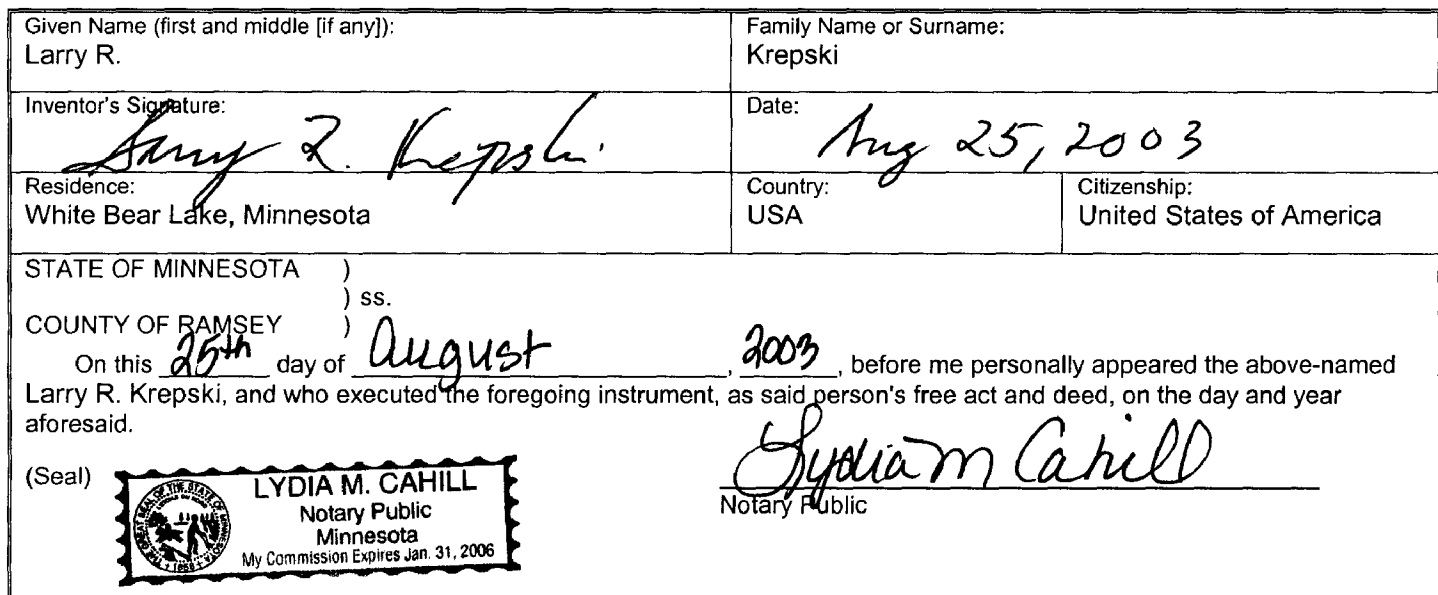 Given Name (first and middle [if any]):
Larry R.
Family Name or Surname:
Krepski
Inventor's Signature:
Larry R. Krepski
Date:
Aug 25, 2003
Residence:
White Bear Lake, Minnesota
Country:
USA
Citizenship:
United States of America
STATE OF MINNESOTA )
) ss.
COUNTY OF RAMSEY )
On this 25th day of August, 2003, before me personally appeared the above-named
Larry R. Krepski, and who executed the foregoing instrument, as said person's free act and deed, on the day and year
aforesaid.
(Seal)
THE GREAT SEAL OF THE STATE OF MINNESOTA
1858
LYDIA M. CAHILL
Notary Public
Minnesota
My Commission Expires Jan. 31, 2006
Lydia M Cahill
Notary Public